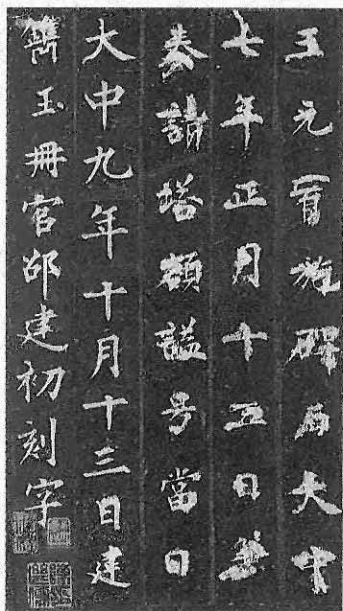 王元宥施碑石大中
七年正月十五日
奏請塔額謚号當日
大中九年十月十三日建
鐫玉冊官邵建初刻字